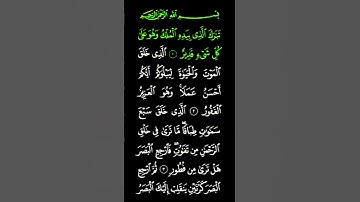 بِسْمِ اللَّهِ الرَّحْمَٰنِ الرَّحِيمِ
تَبَٰرَكَ الَّذِى بِيَدِهِ الْمُلْكُ وَهُوَ عَلَىٰ
كُلِّ شَىْءٍ قَدِيرٌ ۝١ الَّذِى خَلَقَ
الْمَوْتَ وَالْحَيَوٰةَ لِيَبْلُوَكُمْ أَيُّكُمْ
أَحْسَنُ عَمَلًا وَهُوَ الْعَزِيزُ
الْغَفُورُ ۝٢ الَّذِى خَلَقَ سَبْعَ
سَمَٰوَٰتٍ طِبَاقًا مَّا تَرَىٰ فِى خَلْقِ
الرَّحْمَٰنِ مِن تَفَٰوُتٍ فَارْجِعِ الْبَصَرَ
هَلْ تَرَىٰ مِن فُطُورٍ ۝٣ ثُمَّ ارْجِعِ
الْبَصَرَ كَرَّتَيْنِ يَنقَلِبْ إِلَيْكَ الْبَصَرُ